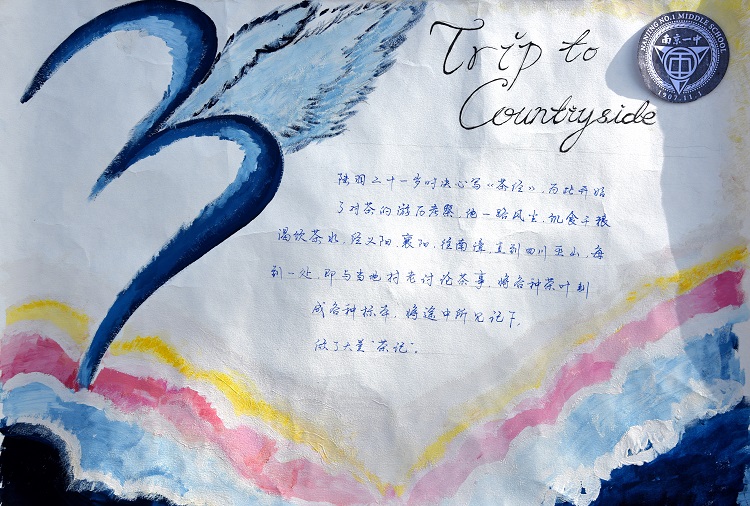 Trip to
Countryside
NANJING NO.1 MIDDLE SCHOOL
南京一中
1907.11.1
陆羽二十一岁时决心写《茶经》,为此开始
了对茶的游历考察,他一路风尘,饥食干粮
渴饮茶水,经义阳、襄阳,往南漳,直到四川巫山,每
到一处,即与当地村老讨论茶事,将各种茶叶制
成各种标本,将途中所见记下,
做了大量“茶记”。